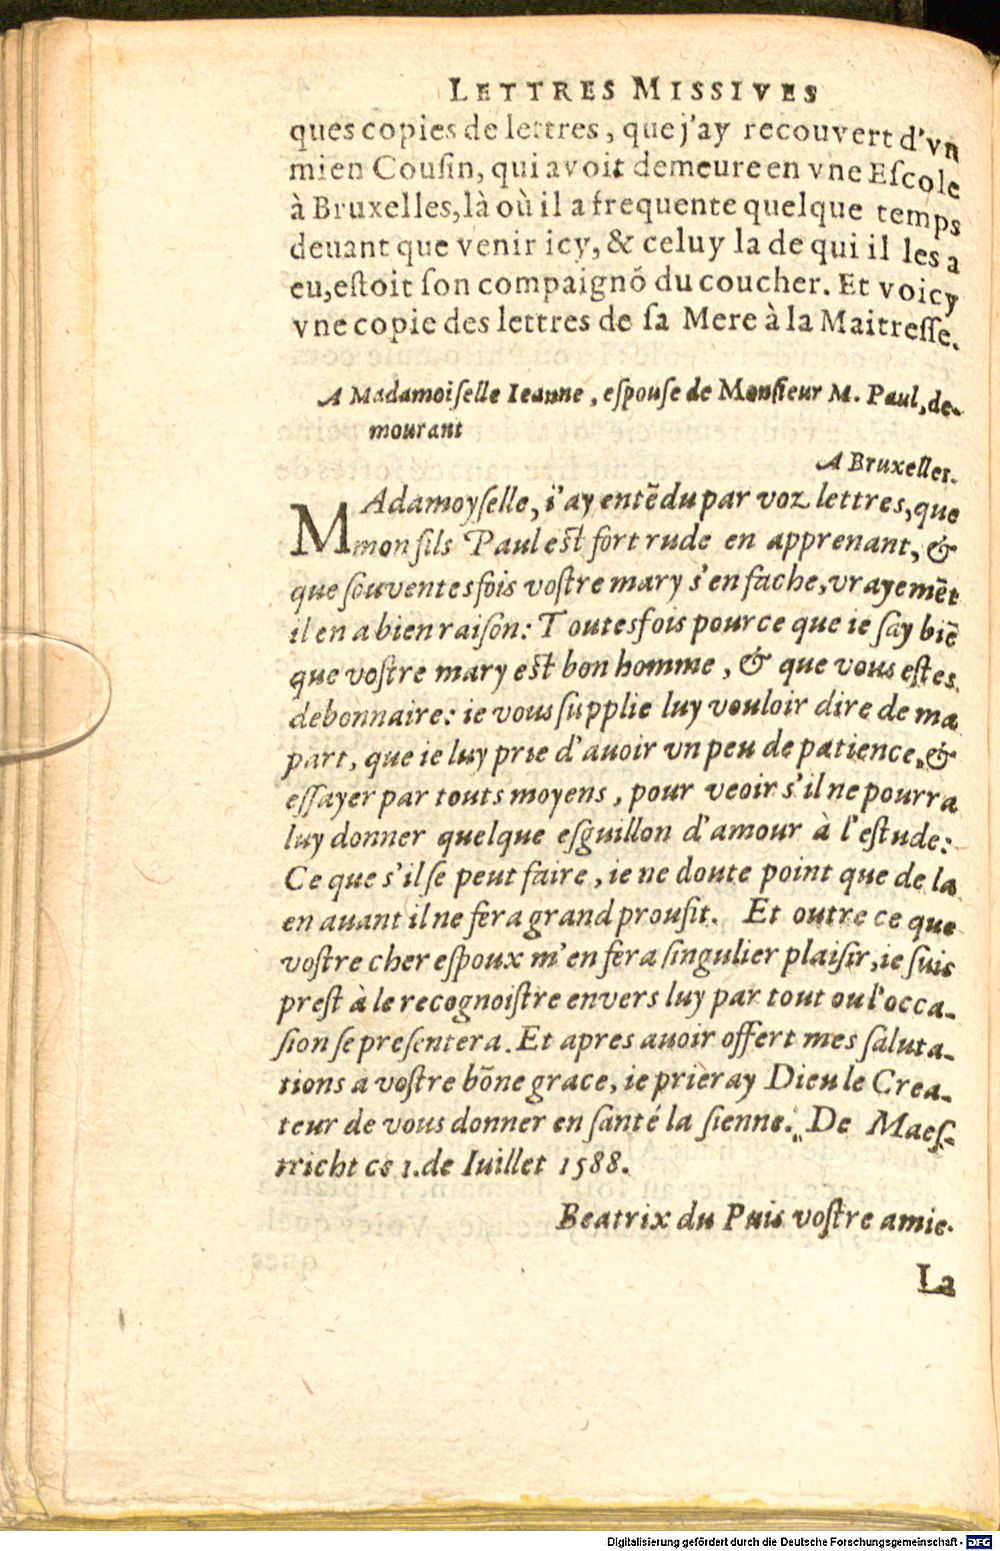 LETTRES MISSIVES
ques copies de lettres, que j'ay recouvert d'vn
mien Cousin, qui avoit demeure en vne Eſcole
à Bruxelles, là où il a frequente quelque temps
deuant que venir icy, & celuy la de qui il les a
eu, eſtoit ſon compaignõ du coucher. Et voicy
vne copie des lettres de ſa Mere à la Maitreſſe.
A Madamoiſelle Ieanne, eſpouſe de Monſieur M. Paul, de-
mourant
A Bruxelles.
MAdamoyſelle, i'ay entẽdu par voz lettres, que
mon fils Paul eſt fort rude en apprenant, &
que ſouventesfois voſtre mary s'en fache, vrayemẽt
il en a bien raiſon: Toutesfois pource que ie ſay biẽ
que voſtre mary eſt bon homme, & que vous eſtes
debonnaire: ie vous ſupplie luy vouloir dire de ma
part, que ie luy prie d'auoir vn peu de patience, &
eſſayer par touts moyens, pour veoir s'il ne pourra
luy donner quelque eſguillon d'amour à l'eſtude:
Ce que s'il ſe peut faire, ie ne doute point que de la
en auant il ne fera grand proufit. Et outre ce que
voſtre cher eſpoux m'en fera ſingulier plaiſir, ie ſuis
preſt à le recognoiſtre envers luy par tout ou l'occa-
ſion ſe preſentera. Et apres auoir offert mes ſaluta-
tions a voſtre bõne grace, ie prieray Dieu le Crea-
teur de vous donner en ſanté la ſienne. De Maeſ-
tricht ce 1. de Iuillet 1588.
Beatrix du Puis voſtre amie.
La
Digitalisierung gefördert durch die Deutsche Forschungsgemeinschaft - DFG